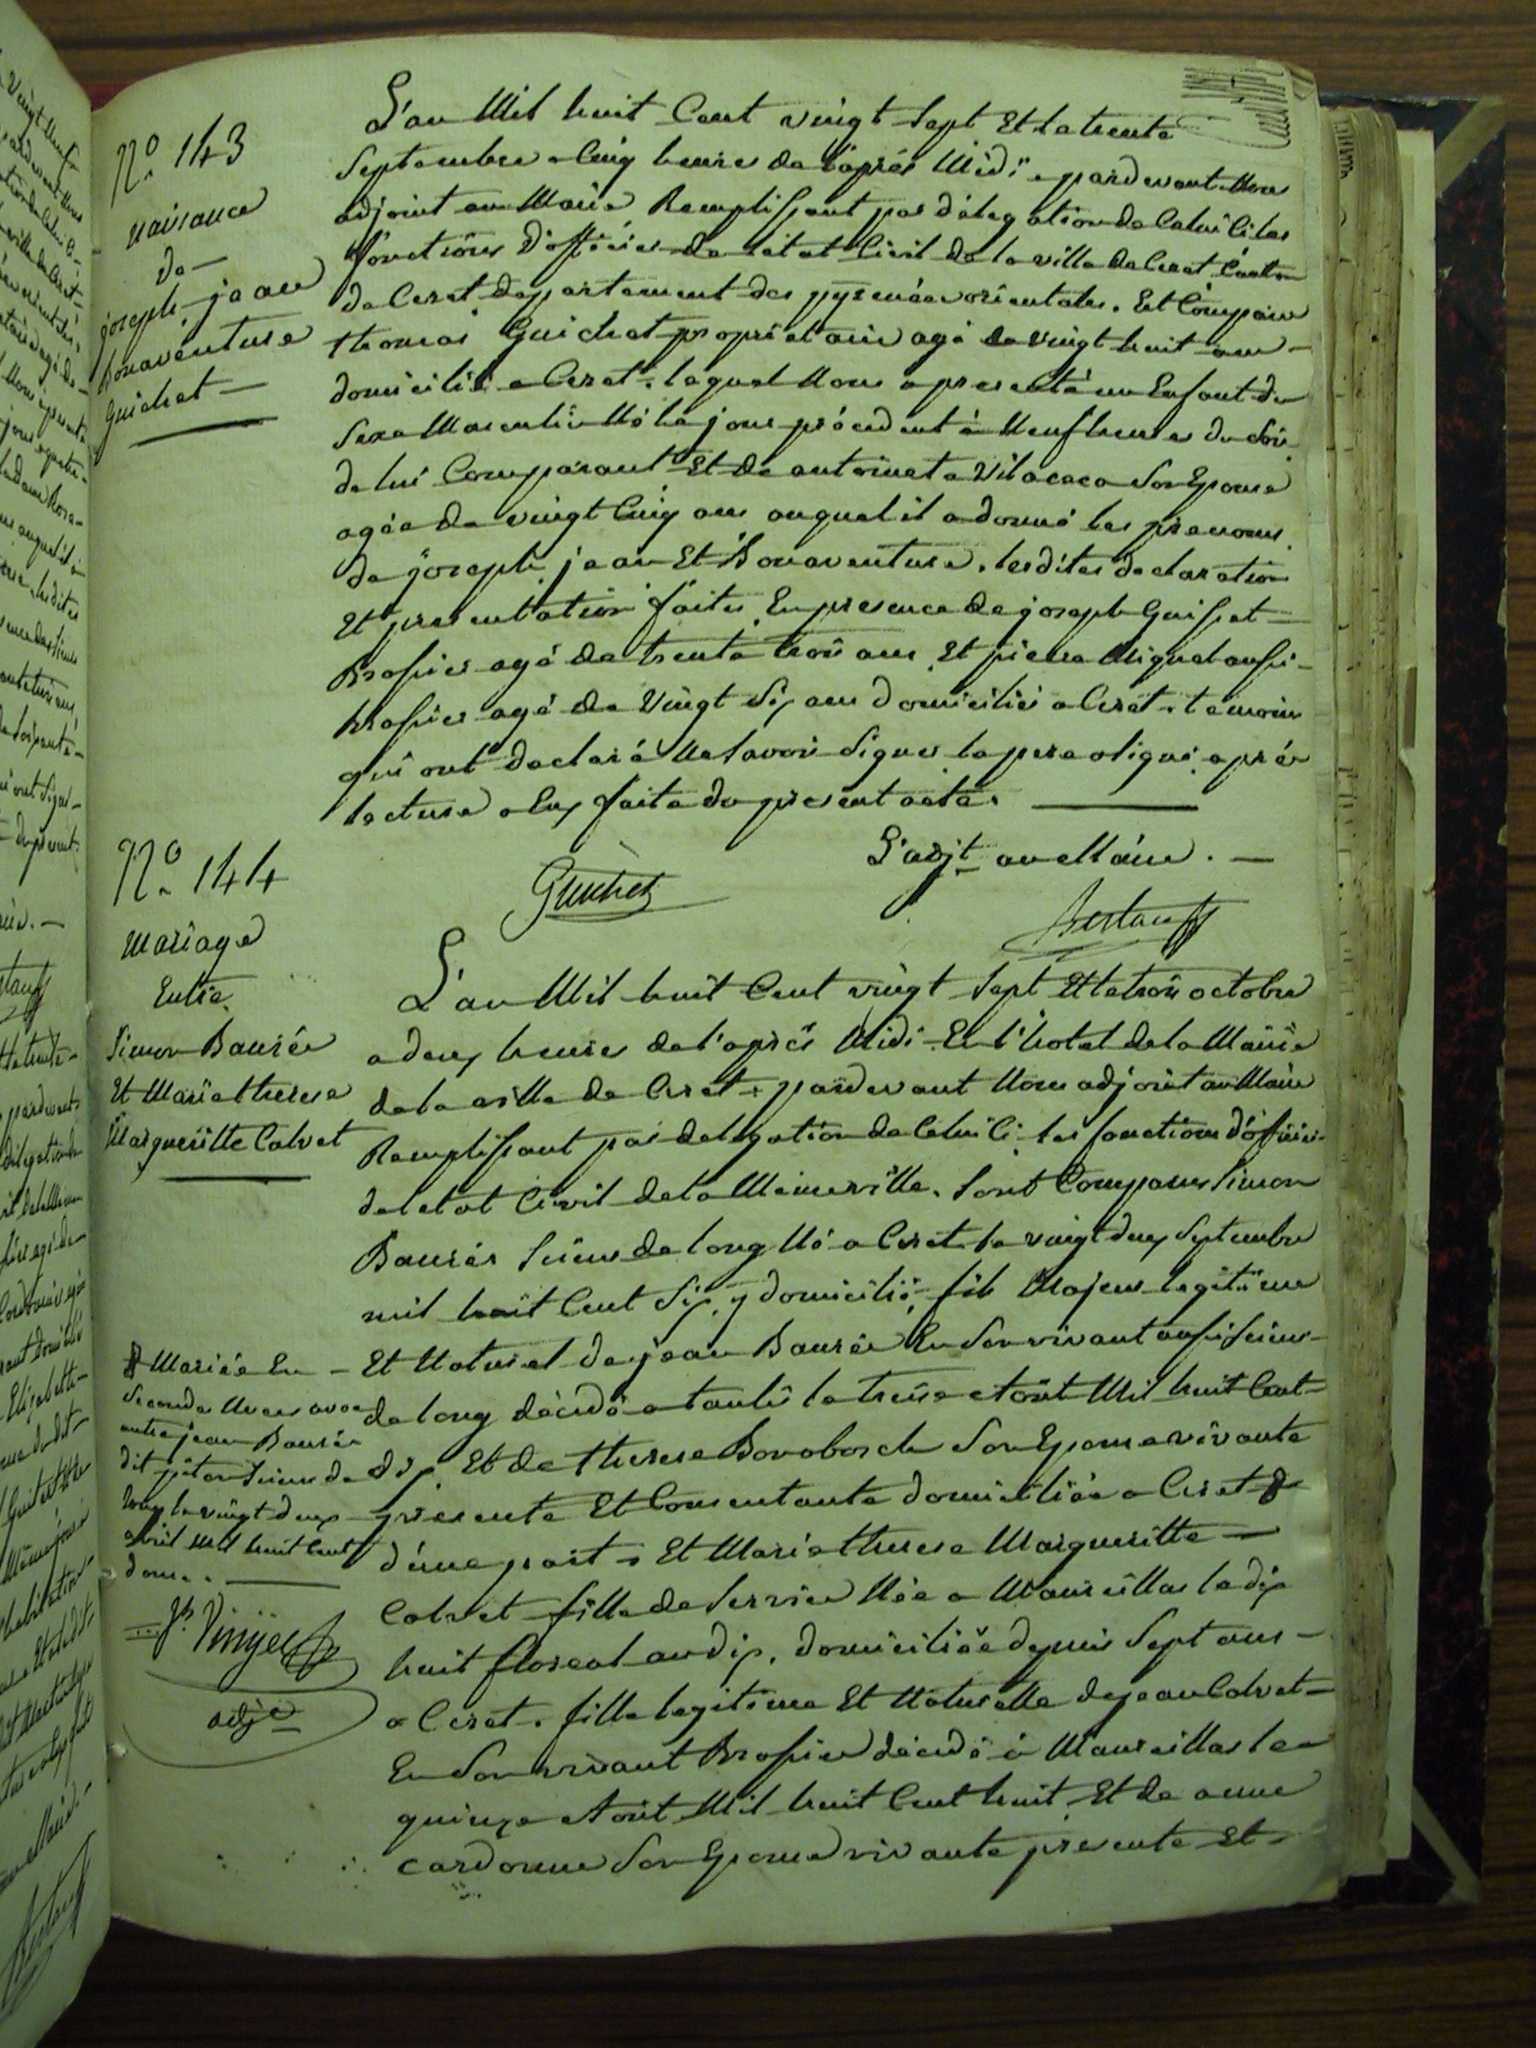 N.o 143
naisance
de
joseph, jean
bonaventure
Guichet
L'an Mil huit Cent vingt Sept Et la trente
Septembre a Cinq heures de l'après Midi, pardevant Nous
adjoint au Maire Remplissant par délégation de Celui Ci les
fonctions D'officier de l'état Civil de la ville de Ceret Canton
de Ceret departement des pyrenées orientales. Est Comparu
thomas Guichet proprietaire agé de vingt huit ans
domicilié a Ceret, lequel Nous a presenté un Enfant du
Sexe Masculin Né le jour précedent à Neuf heures du Soir
de lui Comparant Et de antoinete Vilaceca Son Epouse
agée de vingt Cinq ans auquel il a donné les prenoms
de joseph, jean Et Bonaventure. lesdites declaration
Et presentation faites En presence de joseph Guisset
Brassier agé de trente trois ans, Et pierre Miquel aussi
brassier agé de Vingt Six ans domiciliés a Ceret, temoins
qui ont declaré Ne Savoir Signer le pere a signé, aprés
lecture a Eux faite du present acte.
L'adjt au Maire.
Guichet
N.o 144
Mariage
Entre
Simon Baurés
Et Marie therese
Margueritte Calvet
L'an Mil huit Cent vingt Sept Et le trois octobre
a deux heures de l'aprés Midi En l'hotel de la Mairie
de la ville de Ceret, pardevant Nous adjoint au Maire
Remplissant par delegation de Celui Ci les fonctions d'officier
de l'etat Civil de la Meme ville. Sont Comparus Simon
Baurés Scieur de long Né a Ceret le vingt deux Septembre
mil huit Cent Six, y domicilié, fils Majeur legitime
Et Naturel de jean Baurés En Son vivant aussi Scieur
de long décédé a taulis le treize Août Mil huit Cent
dix, Et de therese Bonabosch Son Epouse vivante
presente Et Consentante domiciliée a Ceret
d'une part, Et Marie therese Margueritte
Calvet fille de Service Née a Maureillas le dix
huit floreal an dix, domiciliée depuis Sept ans
a Ceret, fille legitime Et Naturelle de jean Calvet
En Son vivant Brassier décédé à Maureillas le
quinze Août Mil huit Cent huit Et de anne
cardonne Son Epouse vivante presente Et
Mariée En
Secondes Noces avec
autre jean Baurés
dit Scieur de
long le vingt deux
avril Mil huit Cent
douze.
Jh. Vinyes
adj.